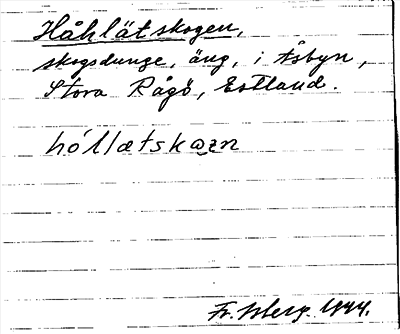 Håhlätskogen,
skogsdunge, äng, i Åsbyn,
Stora Rågö, Estland.
hóllætskazn
Fr. Isberg 1944.